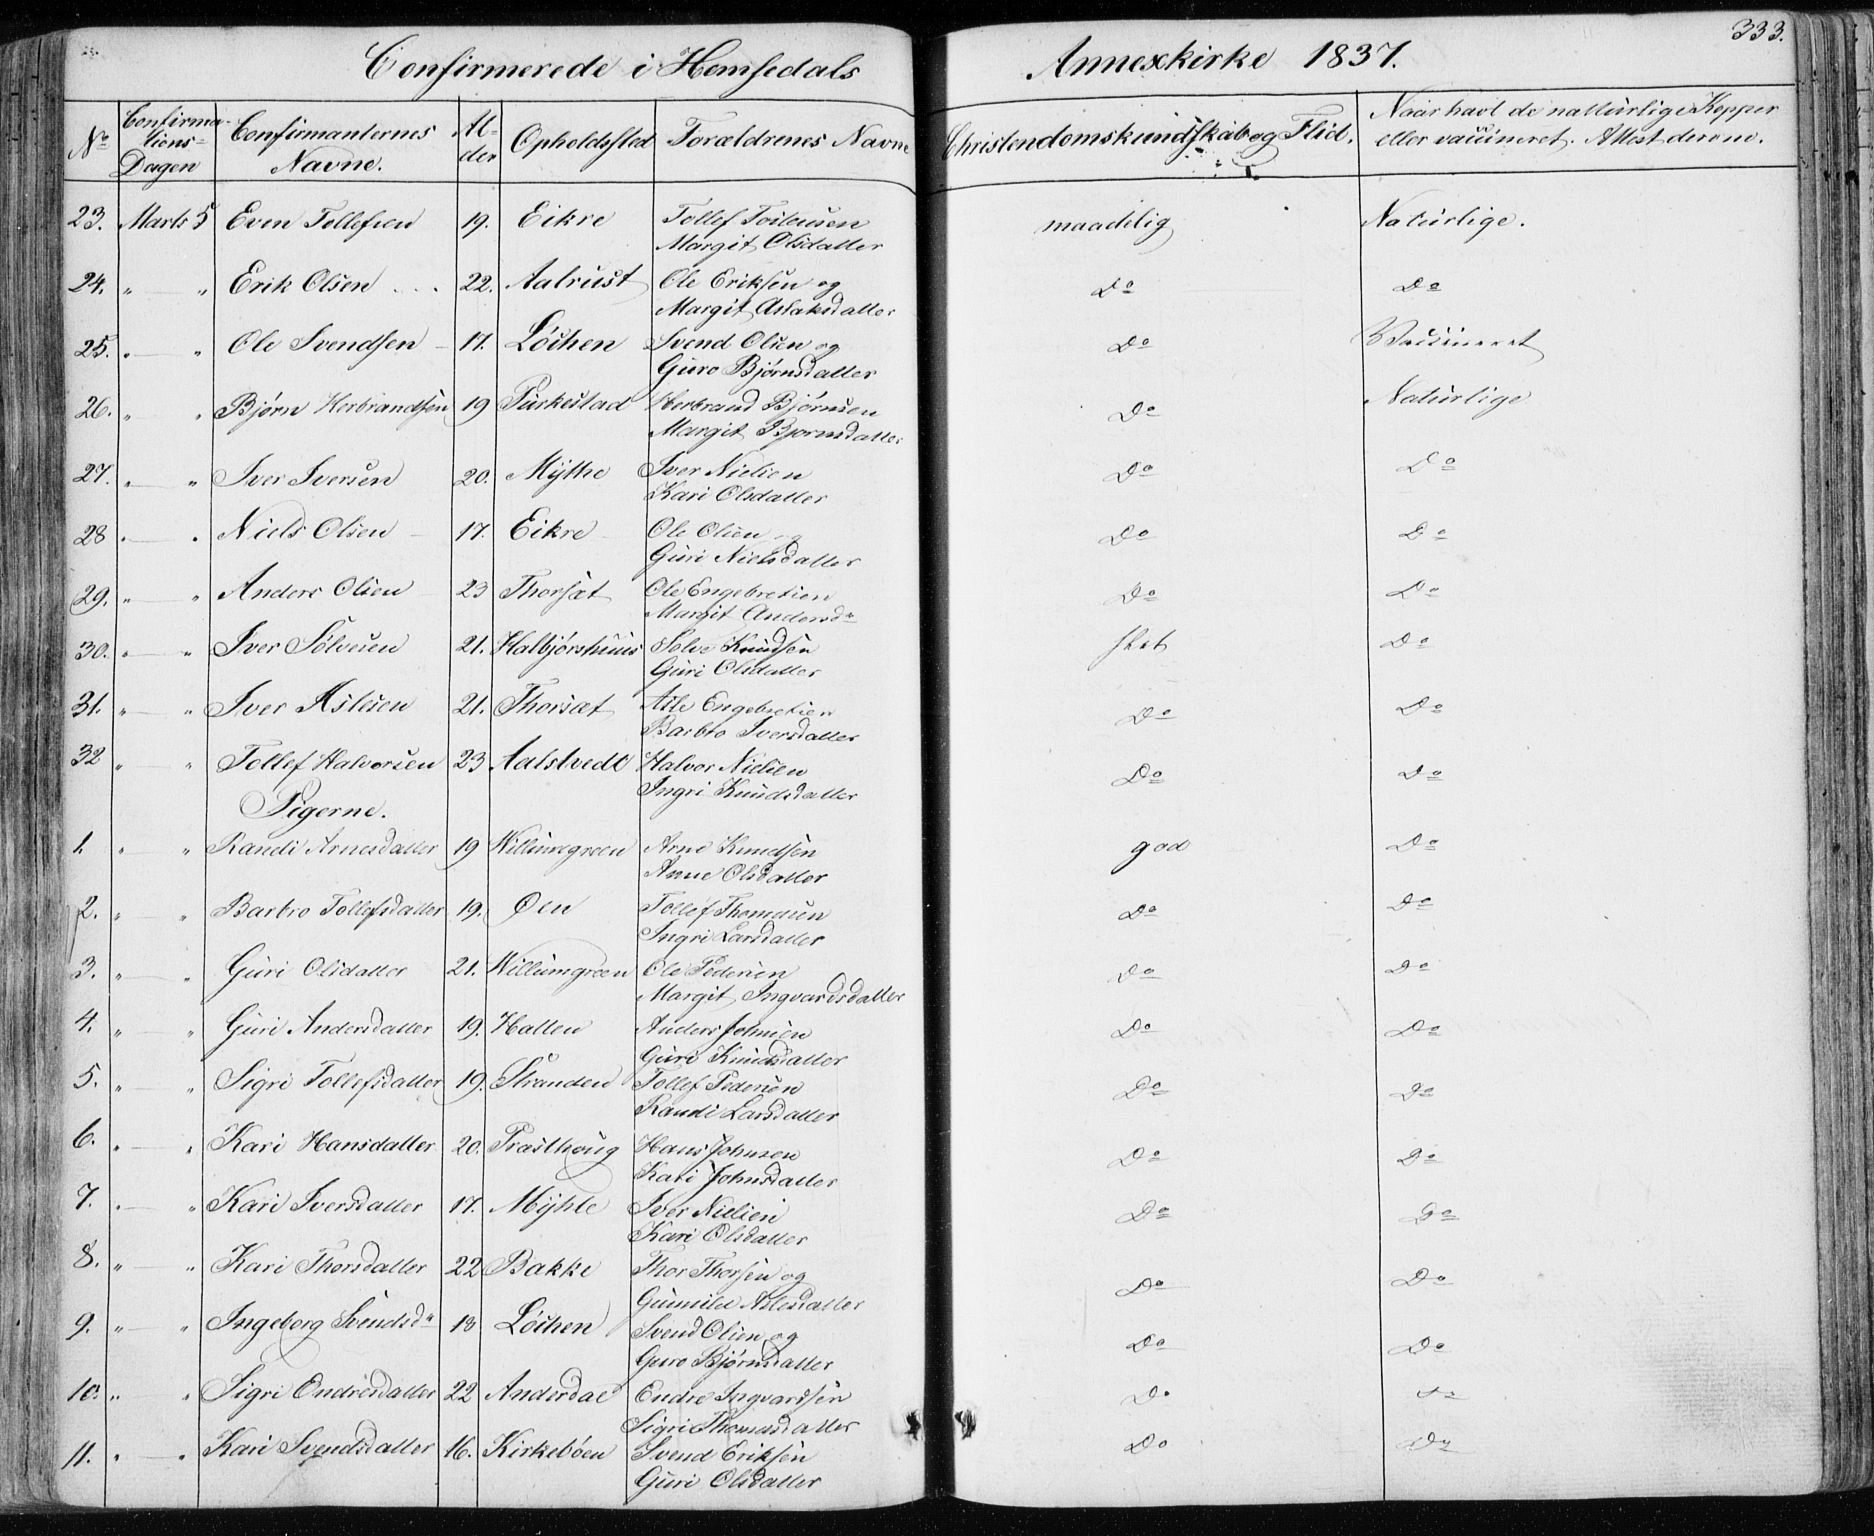 Confirmerede i Hemsedals Annexkirke 1837. 333.
No Confirmations-Dagen Confirmanternes Navne. Alder Opholdssted Forældrenes Navne Christendomskundskab og Flid. Naar havt de naturlige Kopper eller vaccineret. Attest derom.
23. Marts 5 Even Tollefsen 19. Eikre Tollef Margit Olsdatter maadelig Naturlige.
24. " " Erik Olsen 22. Aalrust Ole Eriksen og Margit Aslaksdatter Do Do
25. " " Ole Svendsen 17. Løchen Svend Olsen og Guro Bjørnsdatter Do Vaccineret
26. " " Bjørn Herbrandsen 19 Turkestad Herbrand Bjørnsen Margit Bjornsdatter Do Naturlige
27. " " Iver Iversen 20. Mythe Iver Nielsen Kari Olsdatter Do Do
28 " " Niels Olsen 17. Eikre Ole Olsen og Guri Nielsdatter Do Do
29. " " Anders Olsen 23 Thorsæt Ole Engebretsen Margit Andersd. Do Do
30. " " Iver Sølvesen 21. Halbjørshuus Sølve Knudsen Guri Olsdatter slet Do
31. " " Iver Aslesen 21. Thorsæt Asle Engebretsen Barbro Iversdatter Do Do
32 " " Tollef Halvorsen 23 Aalstvedt Halvor Nielsen Ingri Knudsdatter Do Do
Pigerne.
1. " " Randi Arnesdatter 19 Willumsgreen Arne Knudsen Anne Olsdatter god Do
2. " " Barbro Tollefsdatter 19. Øen Tollef Thomasen Ingri Larsdatter Do Do
3. " " Guri Olsdatter 21. Willumgreen Ole Pedersen Margit Ingvardsdatter Do Do
4. " " Guri Andersdatter 19. Hallen Anders Johnsen Guri Knudsdatter Do Do
5. " " Sigri Tollefsdatter 19. Stranden Tollef Pedersen Randi Larsdatter Do Do
6. " " Kari Hansdatter 20. Træsthoug Hans Johnsen Kari Johnsdatter Do Do
7. " " Kari Iversdatter 17. Myhle Iver Nielsen Kari Olsdatter Do Do
8. " " Kari Thorsdatter 22 Bakke Thor Thorsen og Gunild Aslesdatter Do Do
9. " " Ingeborg Svendsd. 18 Løchen Svend Olsen og Guro Bjørnsdatter Do Do
10. " " Sigri Endresdatter 22 Anderdal Endre Ingvardsen Sigri Thomasdatter Do Do
11. " " Kari Svendsdatter 16. Kirkebøen Svend Eriksen Guri Olsdatter Do Do